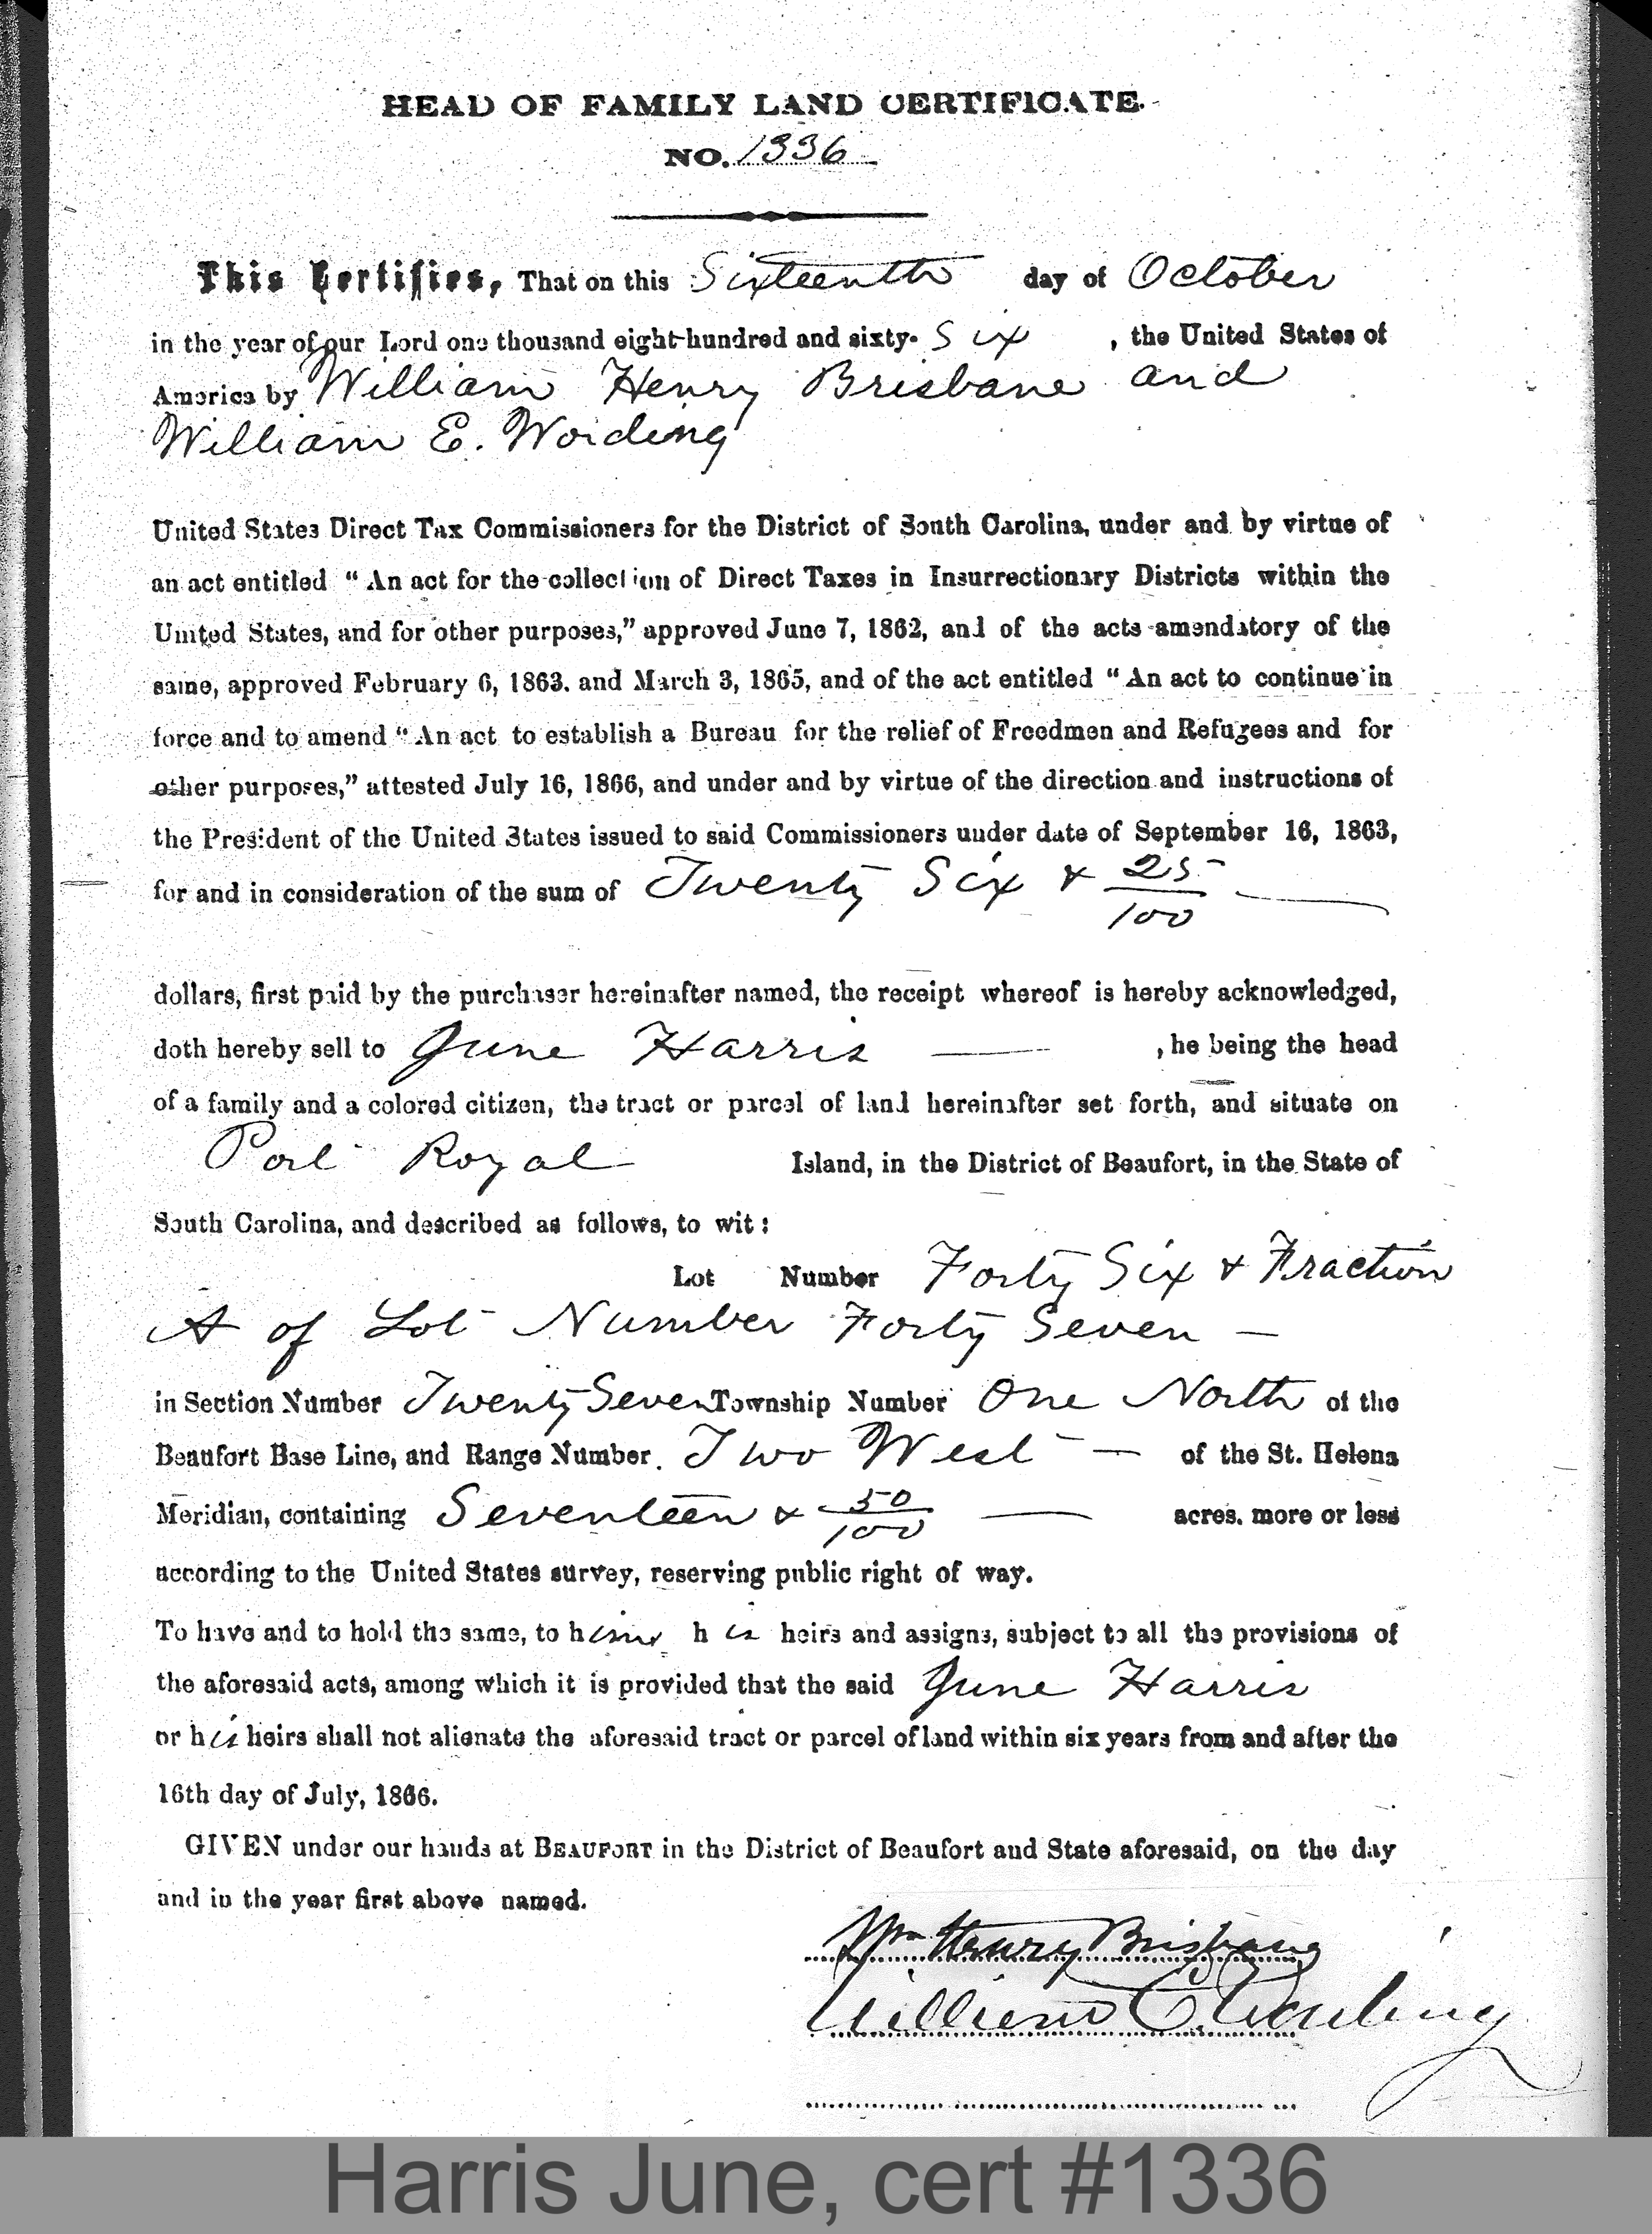 HEAD OF FAMILY LAND CERTIFICATE.
NO. 1336
This Certifies, That on this Sixteenth day of October
in the year of our Lord one thousand eight hundred and sixty-Six, the United States of
America by William Henry Brisbane and
William E. Wording
United States Direct Tax Commissioners for the District of South Carolina, under and by virtue of
an act entitled “An act for the collection of Direct Taxes in Insurrectionary Districts within the
United States, and for other purposes,” approved June 7, 1862, and of the acts amendatory of the
same, approved February 6, 1863. and March 3, 1865, and of the act entitled “An act to continue in
force and to amend “An act to establish a Bureau for the relief of Freedmen and Refugees and for
other purposes,” attested July 16, 1866, and under and by virtue of the direction and instructions of
the President of the United States issued to said Commissioners under date of September 16, 1863,
for and in consideration of the sum of Twenty Six & 25/100
dollars, first paid by the purchaser hereinafter named, the receipt whereof is hereby acknowledged,
doth hereby sell to June Harris — , he being the head
of a family and a colored citizen, the tract or parcel of land hereinafter set forth, and situate on
Port Royal Island, in the District of Beaufort, in the State of
South Carolina, and described as follows, to wit:
Lot Number Forty Six & Fraction
A of Lot Number Forty Seven —
in Section Number Twenty Seven Township Number One North of the
Beaufort Base Line, and Range Number. Two West — of the St. Helena
Meridian, containing Seventeen & 50/100 — acres. more or less
according to the United States survey, reserving public right of way.
To have and to hold the same, to him his heirs and assigns, subject to all the provisions of
the aforesaid acts, among which it is provided that the said June Harris
or his heirs shall not alienate the aforesaid tract or parcel of land within six years from and after the
16th day of July, 1866.
GIVEN under our hands at BEAUFORT in the District of Beaufort and State aforesaid, on the day
and in the year first above named.
Wm Henry Brisbane
William E. Wording
Harris June, cert #1336